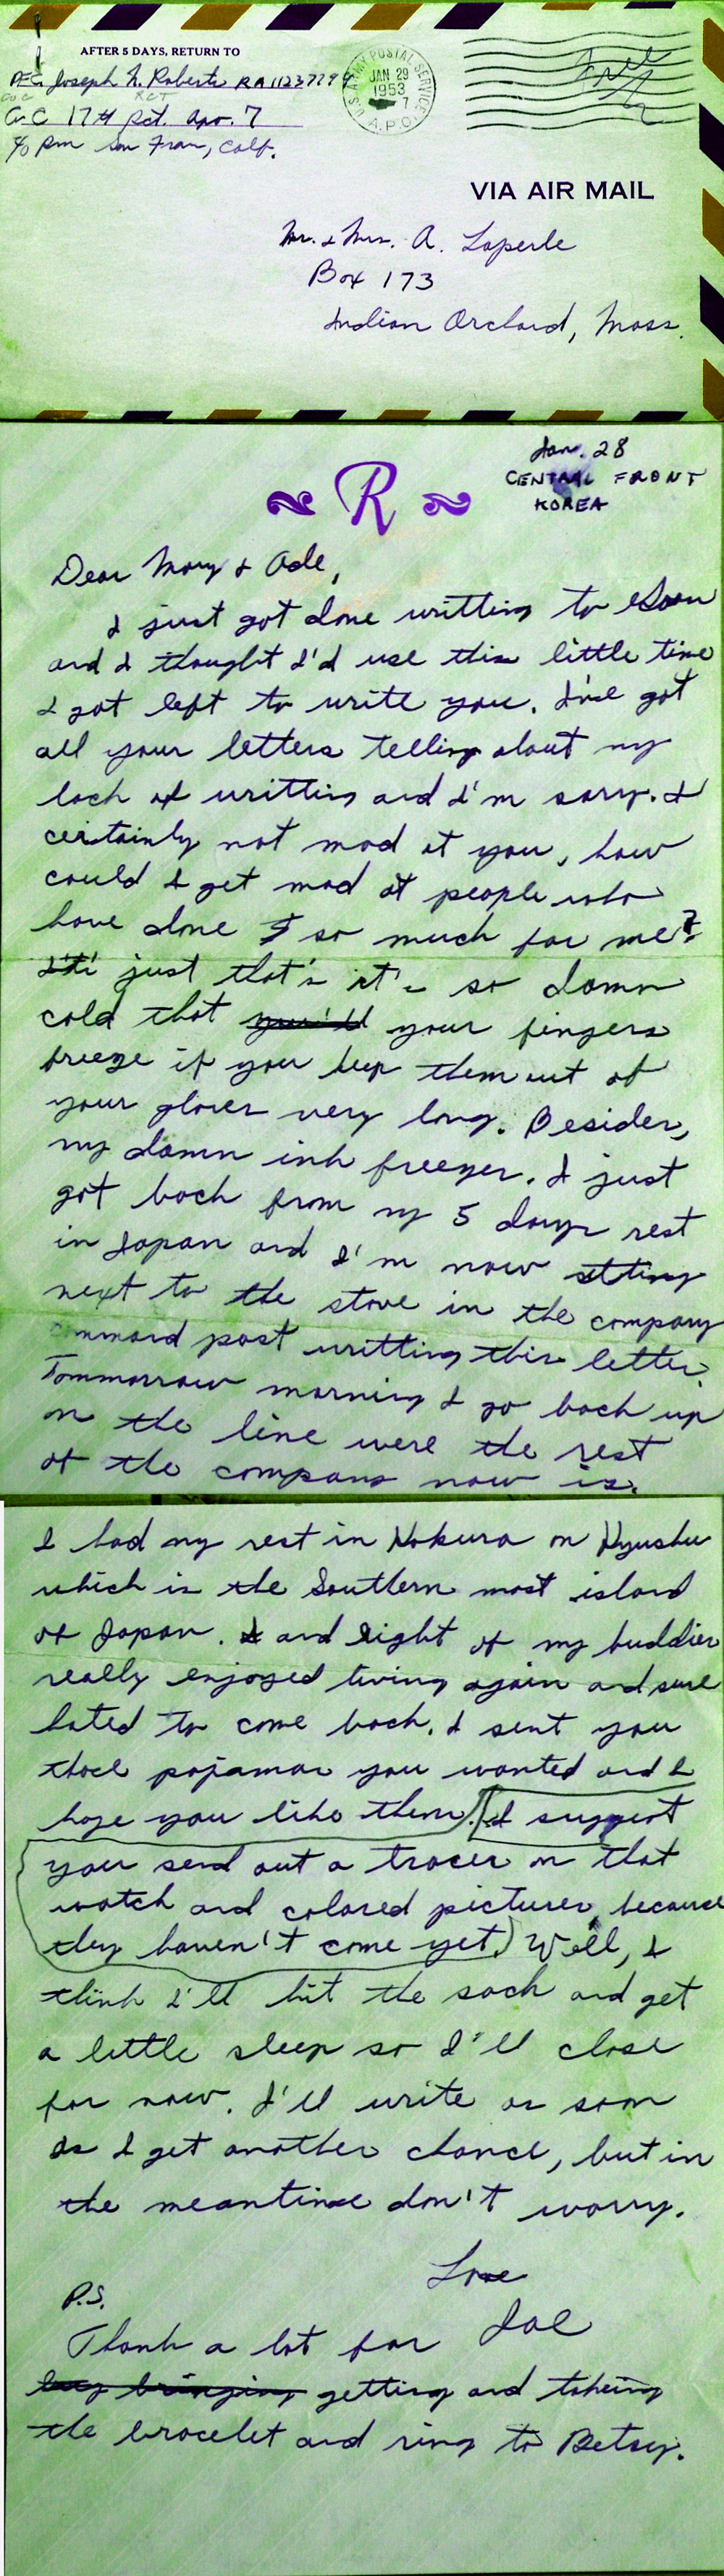 AFTER 5 DAYS, RETURN TO
PFC Joseph N. Roberts RA 11237794
Co C 17th Rct. Apo. 7
c/o Pm San Fran, Calf.
U.S. ARMY POSTAL SERVICE
JAN 29
1953
7
A.P.O.
Free
VIA AIR MAIL
Mr. & Mrs. A. Laperle
Box 173
Indian Orchard, Mass.
Jan. 28
CENTRAL FRONT
KOREA
R
Dear Mary & Ade,
I just got done writting to
and I thought I'd use this little time
I got left to write you. I've got
all your letters telling about my
lack of writting and I'm sorry. I
certainly not mad at you, how
could I get mad at people who
have done so much for me?
just that's it's so damn
cold that you'll your fingers
freeze if you keep them out of
your gloves very long. Besides,
my damn ink freezes. I just
got back from my 5 days rest
in Japan and I'm now sitting
next to the stove in the company
command post writting this letter.
Tommorrow morning I go back up
on the line were the rest
of the company now is.
I had my rest in Kokura on Kyushu
which is the Southern most island
of Japan. I and eight of my buddies
really enjoyed living again and sure
hated to come back. I sent you
those pajamas you wanted and I
hope you like them. (I suggest
you send out a tracer on that
watch and colored pictures, because
they haven't come yet.) Well, I
think I'll hit the sack and get
a little sleep so I'll close
for now. I'll write as soon
as I get another chance, but in
the meantime don't worry.
Love
Joe
P.S.
Thank a lot for
buy bringing getting and takeing
the bracelet and ring to Betsy.